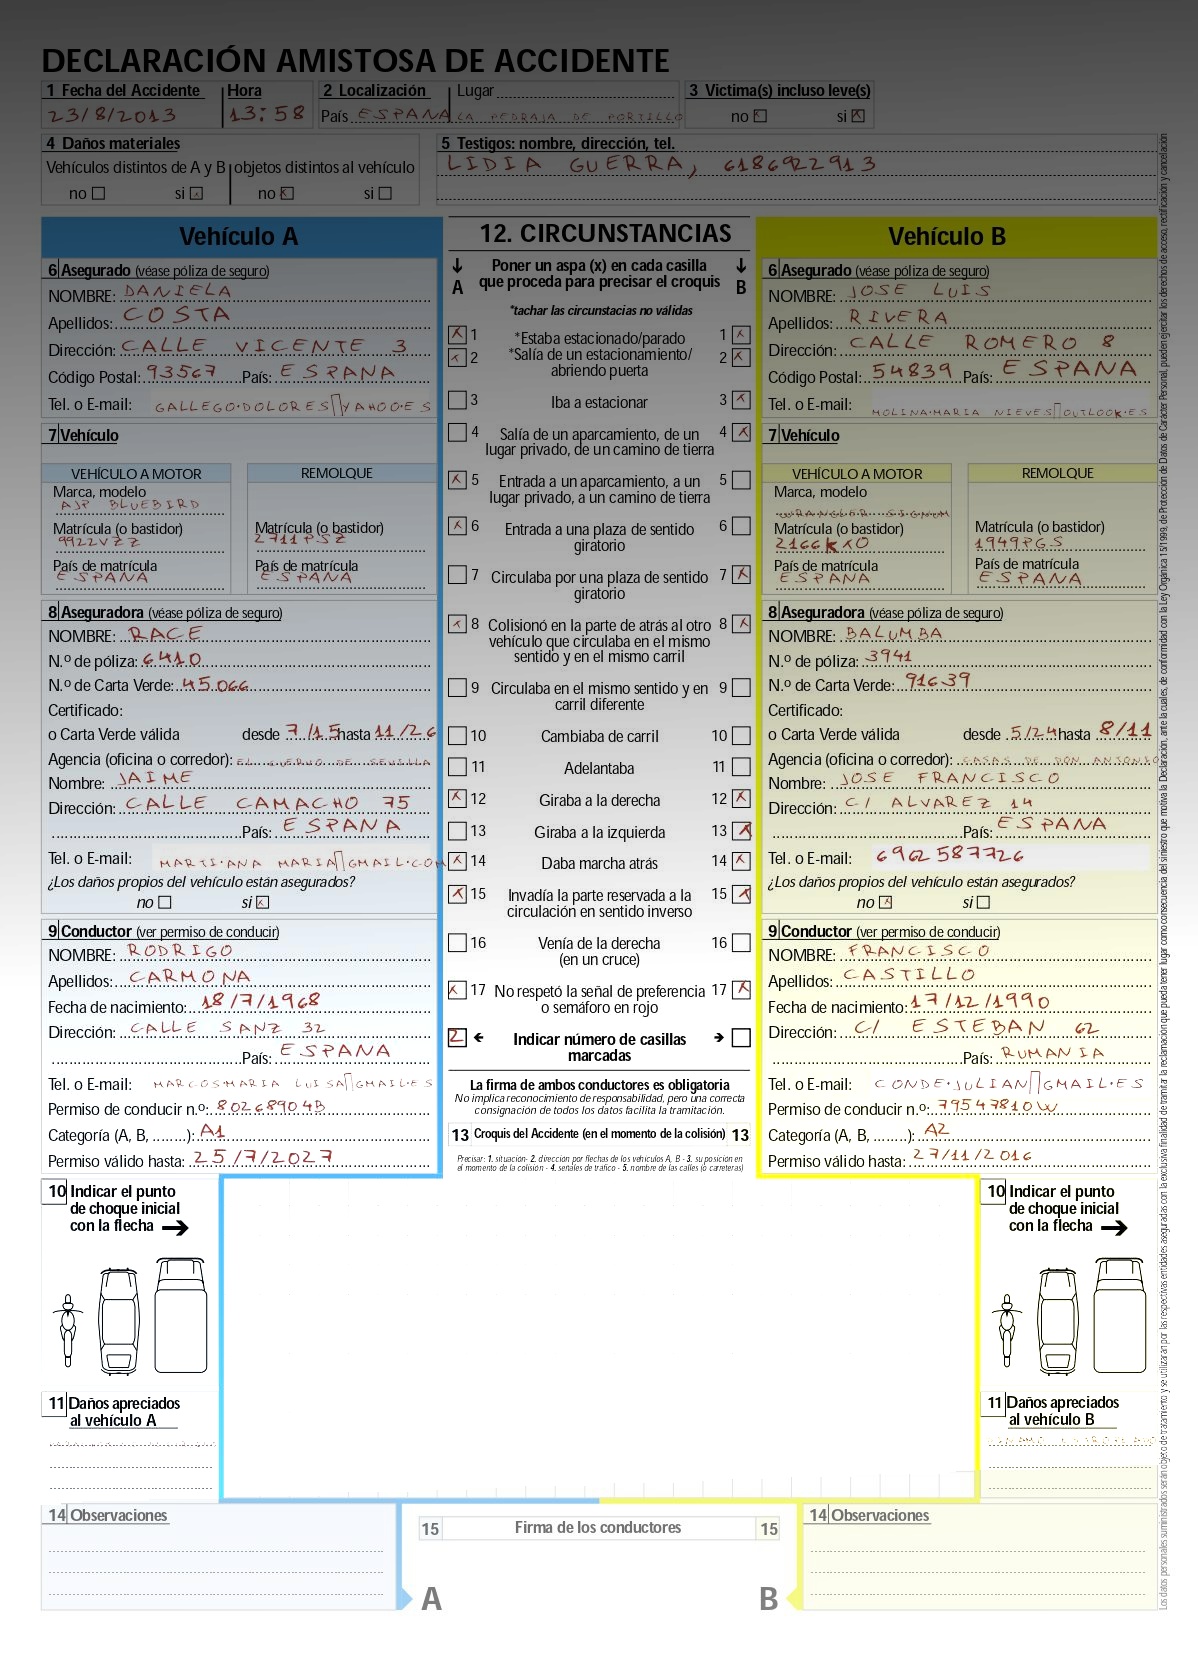 DECLARACIÓN AMISTOSA DE ACCIDENTE
1 Fecha del Accidente Hora 2 Localización Lugar 3 Victima(s) incluso leve(s)
23/8/2013 13:58 País ESPAÑA LA PEDRAJA DE PORTILLO no si X
4 Daños materiales
Vehículos distintos de A y B objetos distintos al vehículo
no si no X si
5 Testigos: nombre, dirección, tel.
LIDIA GUERRA, 6186922913
Vehículo A
6 Asegurado (véase póliza de seguro)
NOMBRE: DANIELA
Apellidos: COSTA
Dirección: CALLE VICENTE 3
Código Postal: 93567 País: ESPAÑA
Tel. o E-mail: GALLEGO.DOLORES YAHOO.ES
7 Vehículo
VEHÍCULO A MOTOR REMOLQUE
Marca, modelo
AJP BLUEBIRD
Matrícula (o bastidor) Matrícula (o bastidor)
9922VZZ 2711PSZ
País de matrícula País de matrícula
ESPAÑA ESPAÑA
8 Aseguradora (véase póliza de seguro)
NOMBRE: RACE
N.º de póliza: 6410
N.º de Carta Verde: 45.066
Certificado:
o Carta Verde válida desde 7/15 hasta 11/26
Agencia (oficina o corredor): EL CUERVO DE SEVILLA
Nombre: JAIME
Dirección: CALLE CAMACHO 75
País: ESPAÑA
Tel. o E-mail: MARTI.ANA MARIA GMAIL.COM
¿Los daños propios del vehículo están asegurados?
no si X
9 Conductor (ver permiso de conducir)
NOMBRE: RODRIGO
Apellidos: CARMONA
Fecha de nacimiento: 18/7/1968
Dirección: CALLE SANZ 32
País: ESPAÑA
Tel. o E-mail: MARCOS.MARIA LUISA GMAIL.ES
Permiso de conducir n.º: 80268904B
Categoría (A, B, ........): A1
Permiso válido hasta: 25/7/2027
10 Indicar el punto
de choque inicial
con la flecha
11 Daños apreciados
al vehículo A
12. CIRCUNSTANCIAS
A Poner un aspa (x) en cada casilla B
que proceda para precisar el croquis
*tachar las circunstacias no válidas
X 1 *Estaba estacionado/parado 1 X
X 2 *Salía de un estacionamiento/ 2 X
abriendo puerta
3 Iba a estacionar 3 X
4 Salía de un aparcamiento, de un 4 X
lugar privado, de un camino de tierra
X 5 Entrada a un aparcamiento, a un 5
lugar privado, a un camino de tierra
X 6 Entrada a una plaza de sentido 6
giratorio
7 Circulaba por una plaza de sentido 7 X
giratorio
X 8 Colisionó en la parte de atrás al otro 8 X
vehículo que circulaba en el mismo
sentido y en el mismo carril
9 Circulaba en el mismo sentido y en 9
carril diferente
10 Cambiaba de carril 10
11 Adelantaba 11
X 12 Giraba a la derecha 12 X
13 Giraba a la izquierda 13 X
X 14 Daba marcha atrás 14 X
X 15 Invadía la parte reservada a la 15 X
circulación en sentido inverso
16 Venía de la derecha 16
(en un cruce)
X 17 No respetó la señal de preferencia 17 X
o semáforo en rojo
2 Indicar número de casillas
marcadas
La firma de ambos conductores es obligatoria
No implica reconocimiento de responsabilidad, pero una correcta
consignación de todos los datos facilita la tramitación.
13 Croquis del Accidente (en el momento de la colisión) 13
Precisar: 1. situación- 2. dirección por flechas de los vehículos A, B - 3. su posición en
el momento de la colisión - 4. señales de tráfico - 5. nombre de las calles (o carreteras)
Vehículo B
6 Asegurado (véase póliza de seguro)
NOMBRE: JOSE LUIS
Apellidos: RIVERA
Dirección: CALLE ROMERO 8
Código Postal: 54839 País: ESPAÑA
Tel. o E-mail: MOLINA.MARIA NIEVES OUTLOOK.ES
7 Vehículo
VEHÍCULO A MOTOR REMOLQUE
Marca, modelo
WRANGLER SIGNUM
Matrícula (o bastidor) Matrícula (o bastidor)
2166KXO 1949PGS
País de matrícula País de matrícula
ESPAÑA ESPAÑA
8 Aseguradora (véase póliza de seguro)
NOMBRE: BALUMBA
N.º de póliza: 3941
N.º de Carta Verde: 91639
Certificado:
o Carta Verde válida desde 5/24 hasta 8/11
Agencia (oficina o corredor): CASAS DE DON ANTONIO
Nombre: JOSE FRANCISCO
Dirección: C/ ALVAREZ 14
País: ESPAÑA
Tel. o E-mail: 6962587726
¿Los daños propios del vehículo están asegurados?
no X si
9 Conductor (ver permiso de conducir)
NOMBRE: FRANCISCO
Apellidos: CASTILLO
Fecha de nacimiento: 17/12/1990
Dirección: C/ ESTEBAN 62
País: RUMANIA
Tel. o E-mail: CONDE.JULIAN GMAIL.ES
Permiso de conducir n.º: 79547810W
Categoría (A, B, ........): A2
Permiso válido hasta: 27/11/2016
10 Indicar el punto
de choque inicial
con la flecha
11 Daños apreciados
al vehículo B
14 Observaciones
15 Firma de los conductores 15
A B
14 Observaciones
Los datos personales suministrados serán objeto de tratamiento y se utilizaran por las respectivas entidades aseguradas con la exclusiva finalidad de tramitar la reclamación que pueda tener lugar como consecuencia del siniestro que motiva la Declaración, ante la cuales, de conformidad con la Ley Orgánica 15/1999, de Protección de Datos de Carácter Personal, pueden ejercitar los derechos de acceso, rectificación y cancelación